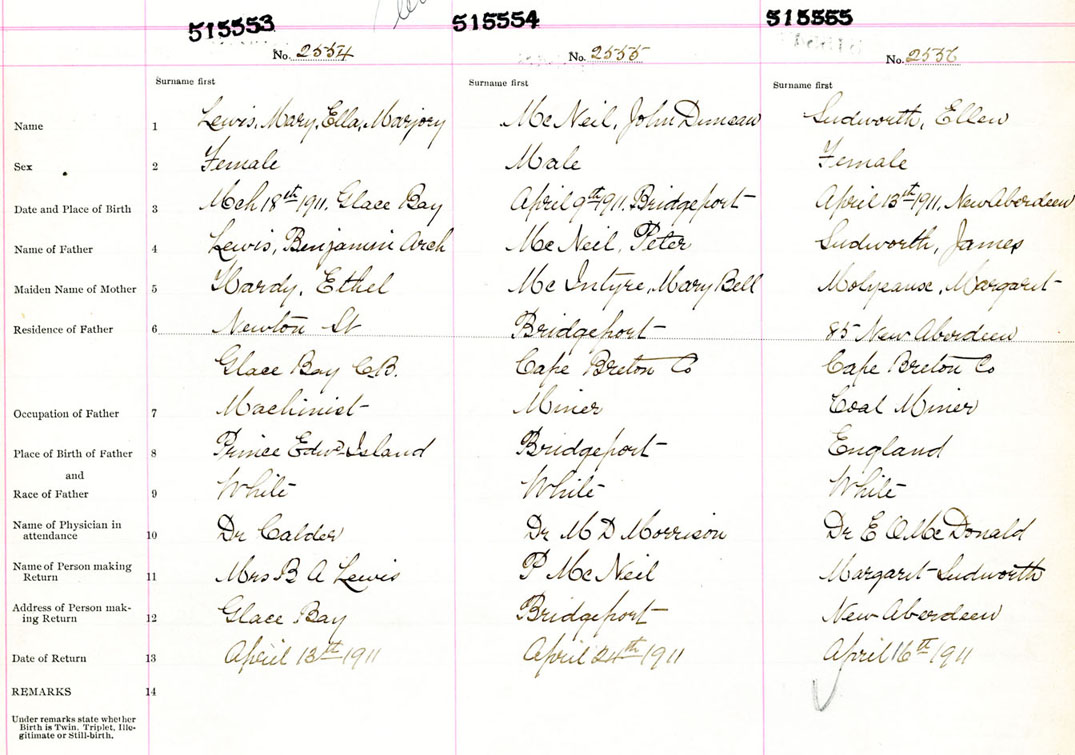 515553 515554 515555
No. 2554 No. 2555 No. 2556
Surname first Surname first Surname first
Name 1 Lewis, Mary, Ella, Marjory McNeil, John Duncan Sudworth, Ellen
Sex 2 Female Male Female
Date and Place of Birth 3 Mch 18th 1911, Glace Bay April 9th 1911, Bridgeport April 13th 1911, New Aberdeen
Name of Father 4 Lewis, Benjamin Arch McNeil, Peter Sudworth, James
Maiden Name of Mother 5 Hardy, Ethel McIntyre, Mary Bell Margaret
Residence of Father 6 Newton St Bridgeport 85 New Aberdeen
Glace Bay C.B. Cape Breton Co Cape Breton Co
Occupation of Father 7 Machinist Miner Coal Miner
Place of Birth of Father 8 Prince Edwd Island Bridgeport England
and
Race of Father 9 White White White
Name of Physician in
attendance 10 Dr Calder Dr M D Morrison Dr E O McDonald
Name of Person making
Return 11 Mrs B A Lewis P McNeil Margaret Sudworth
Address of Person mak-
ing Return 12 Glace Bay Bridgeport New Aberdeen
Date of Return 13 April 13th 1911 April 24th 1911 April 16th 1911
REMARKS 14
Under remarks state whether
Birth is Twin, Triplet, Ille-
gitimate or Still-birth.